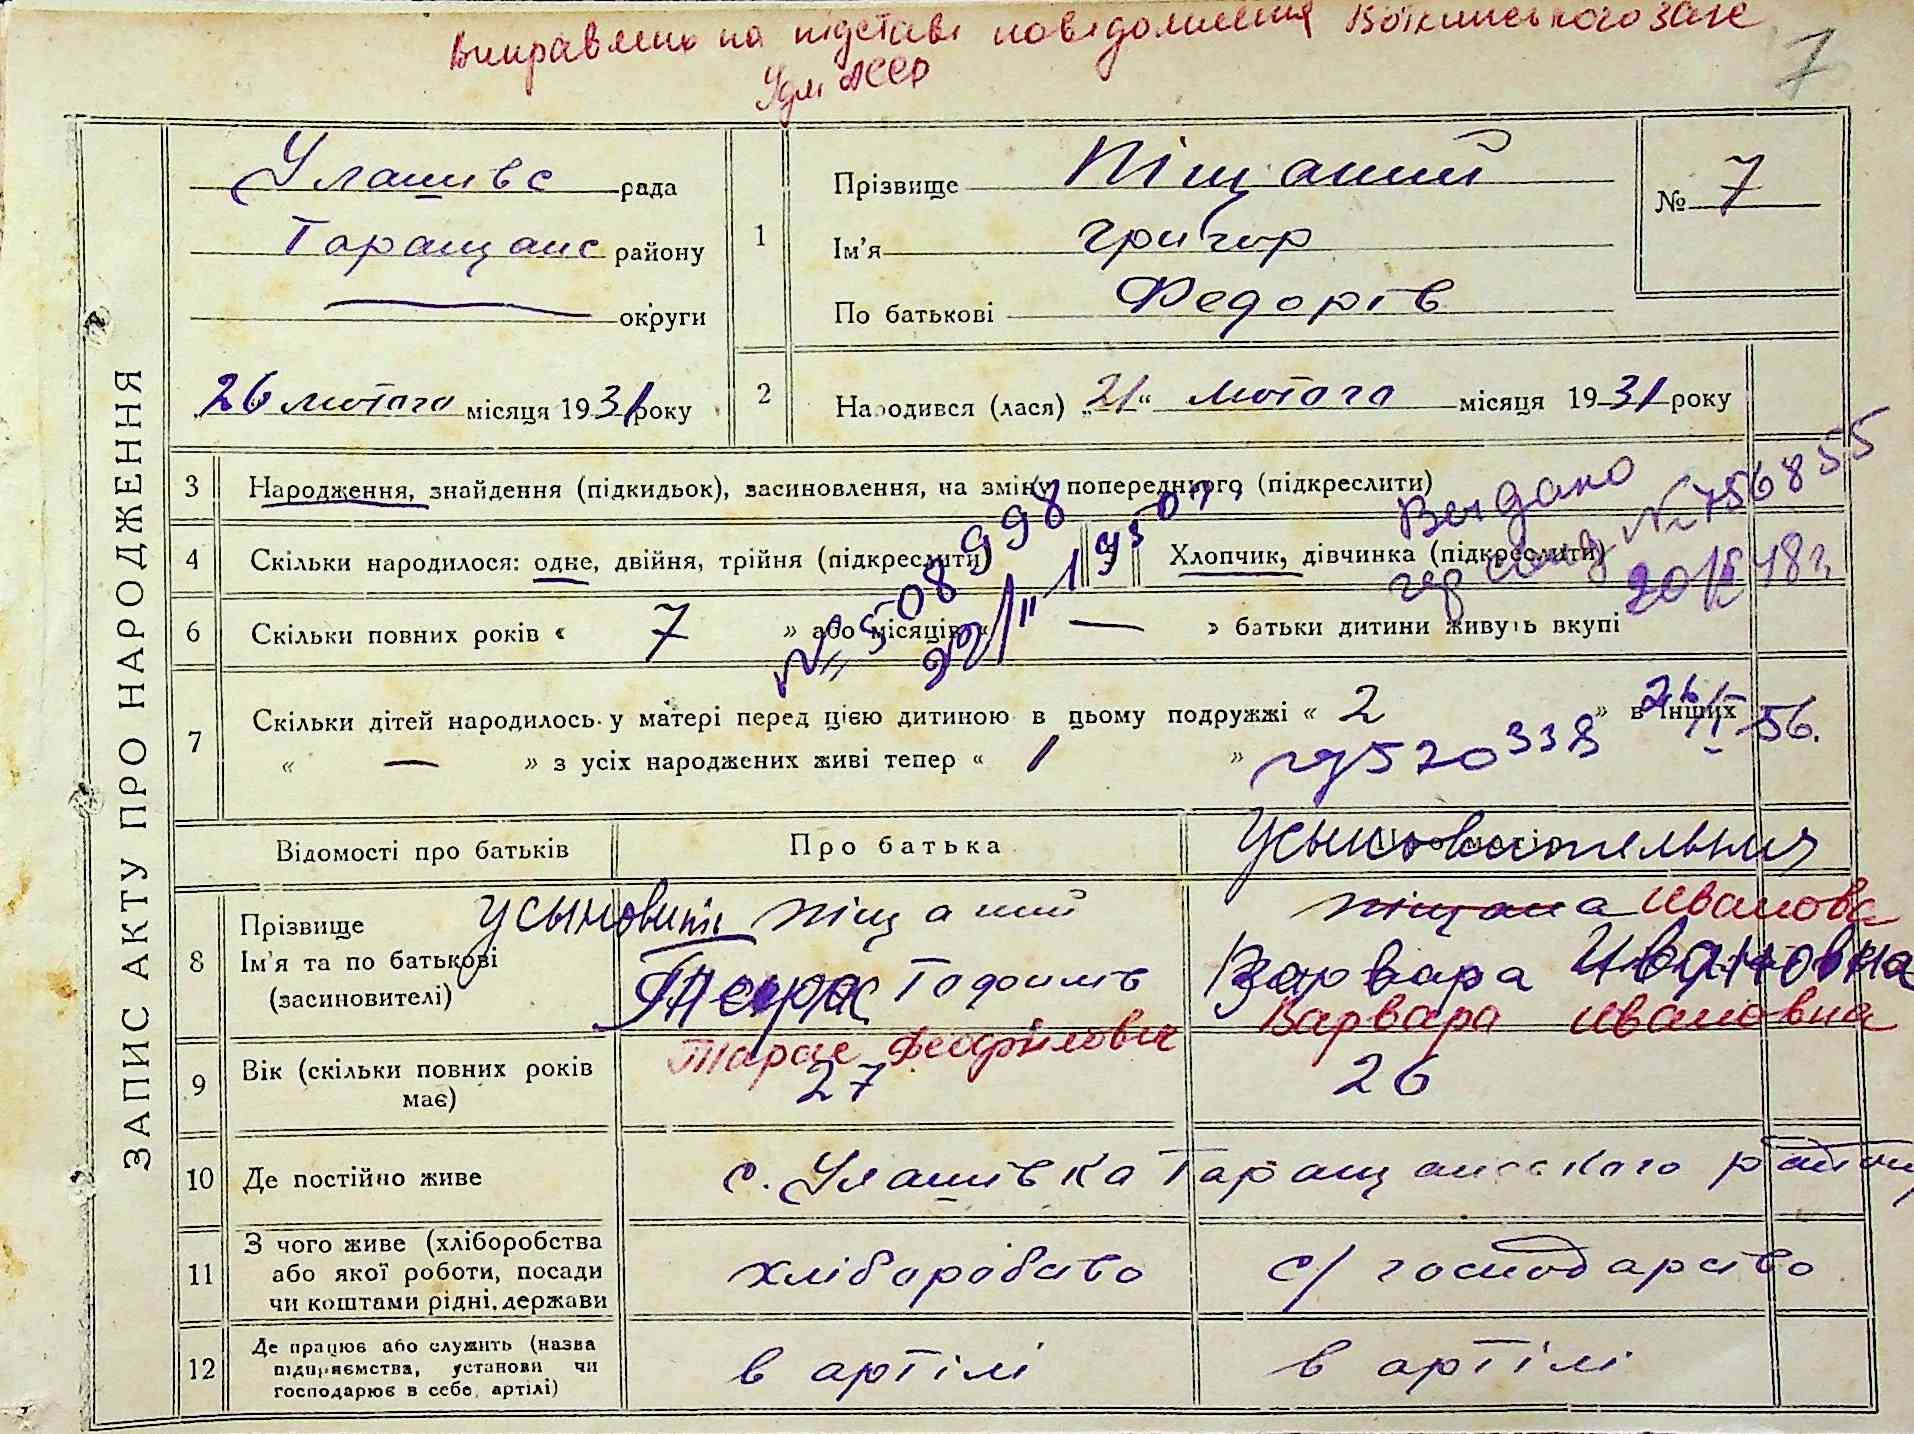 Виправлено на підставі повідомлення Воткинського Загс
Удм АССР
7
ЗАПИС АКТУ ПРО НАРОДЖЕННЯ
Улашивс рада
Таращанс району
округи
„26 лютого місяця 1931 року
1
Прізвище Піщаний
Ім'я Григор
По батькові Федорів
№ 7
2
Народився (лася) „21“ лютого місяця 1931 року
3 Народження, знайдення (підкидьок), засиновлення, на зміну попереднього (підкреслити)
Выдано
№ 756855
4 Скільки народилося: одне, двійня, трійня (підкреслити)
Хлопчик, дівчинка (підкреслити)
20/X 48 г.
№ 508998
6 Скільки повних років « 7 » або місяців « — » батьки дитини живуть вкупі
7 Скільки дітей народилось у матері перед цією дитиною в цьому подружжі « 2 » в інших
« — » з усіх народжених живі тепер « 1 »
520338
56.
Відомості про батьків
Про батька
Усыновительния
8 Прізвище
Ім'я та по батькові
(засиновителі)
усыновит Піщаний
Тарас
Тарас Феофилович
Піщана Иванова
Варвара Ивановна
Варвара Ивановна
9 Вік (скільки повних років має)
27
26
10 Де постійно живе
с. Улашівка Таращанського району
11 З чого живе (хліборобства або якої роботи, посади чи коштами рідні, держави
хліборобство
с/господарство
12 Де працює або служить (назва підприємства, установи чи господарює в себе, артілі)
в артілі
в артілі